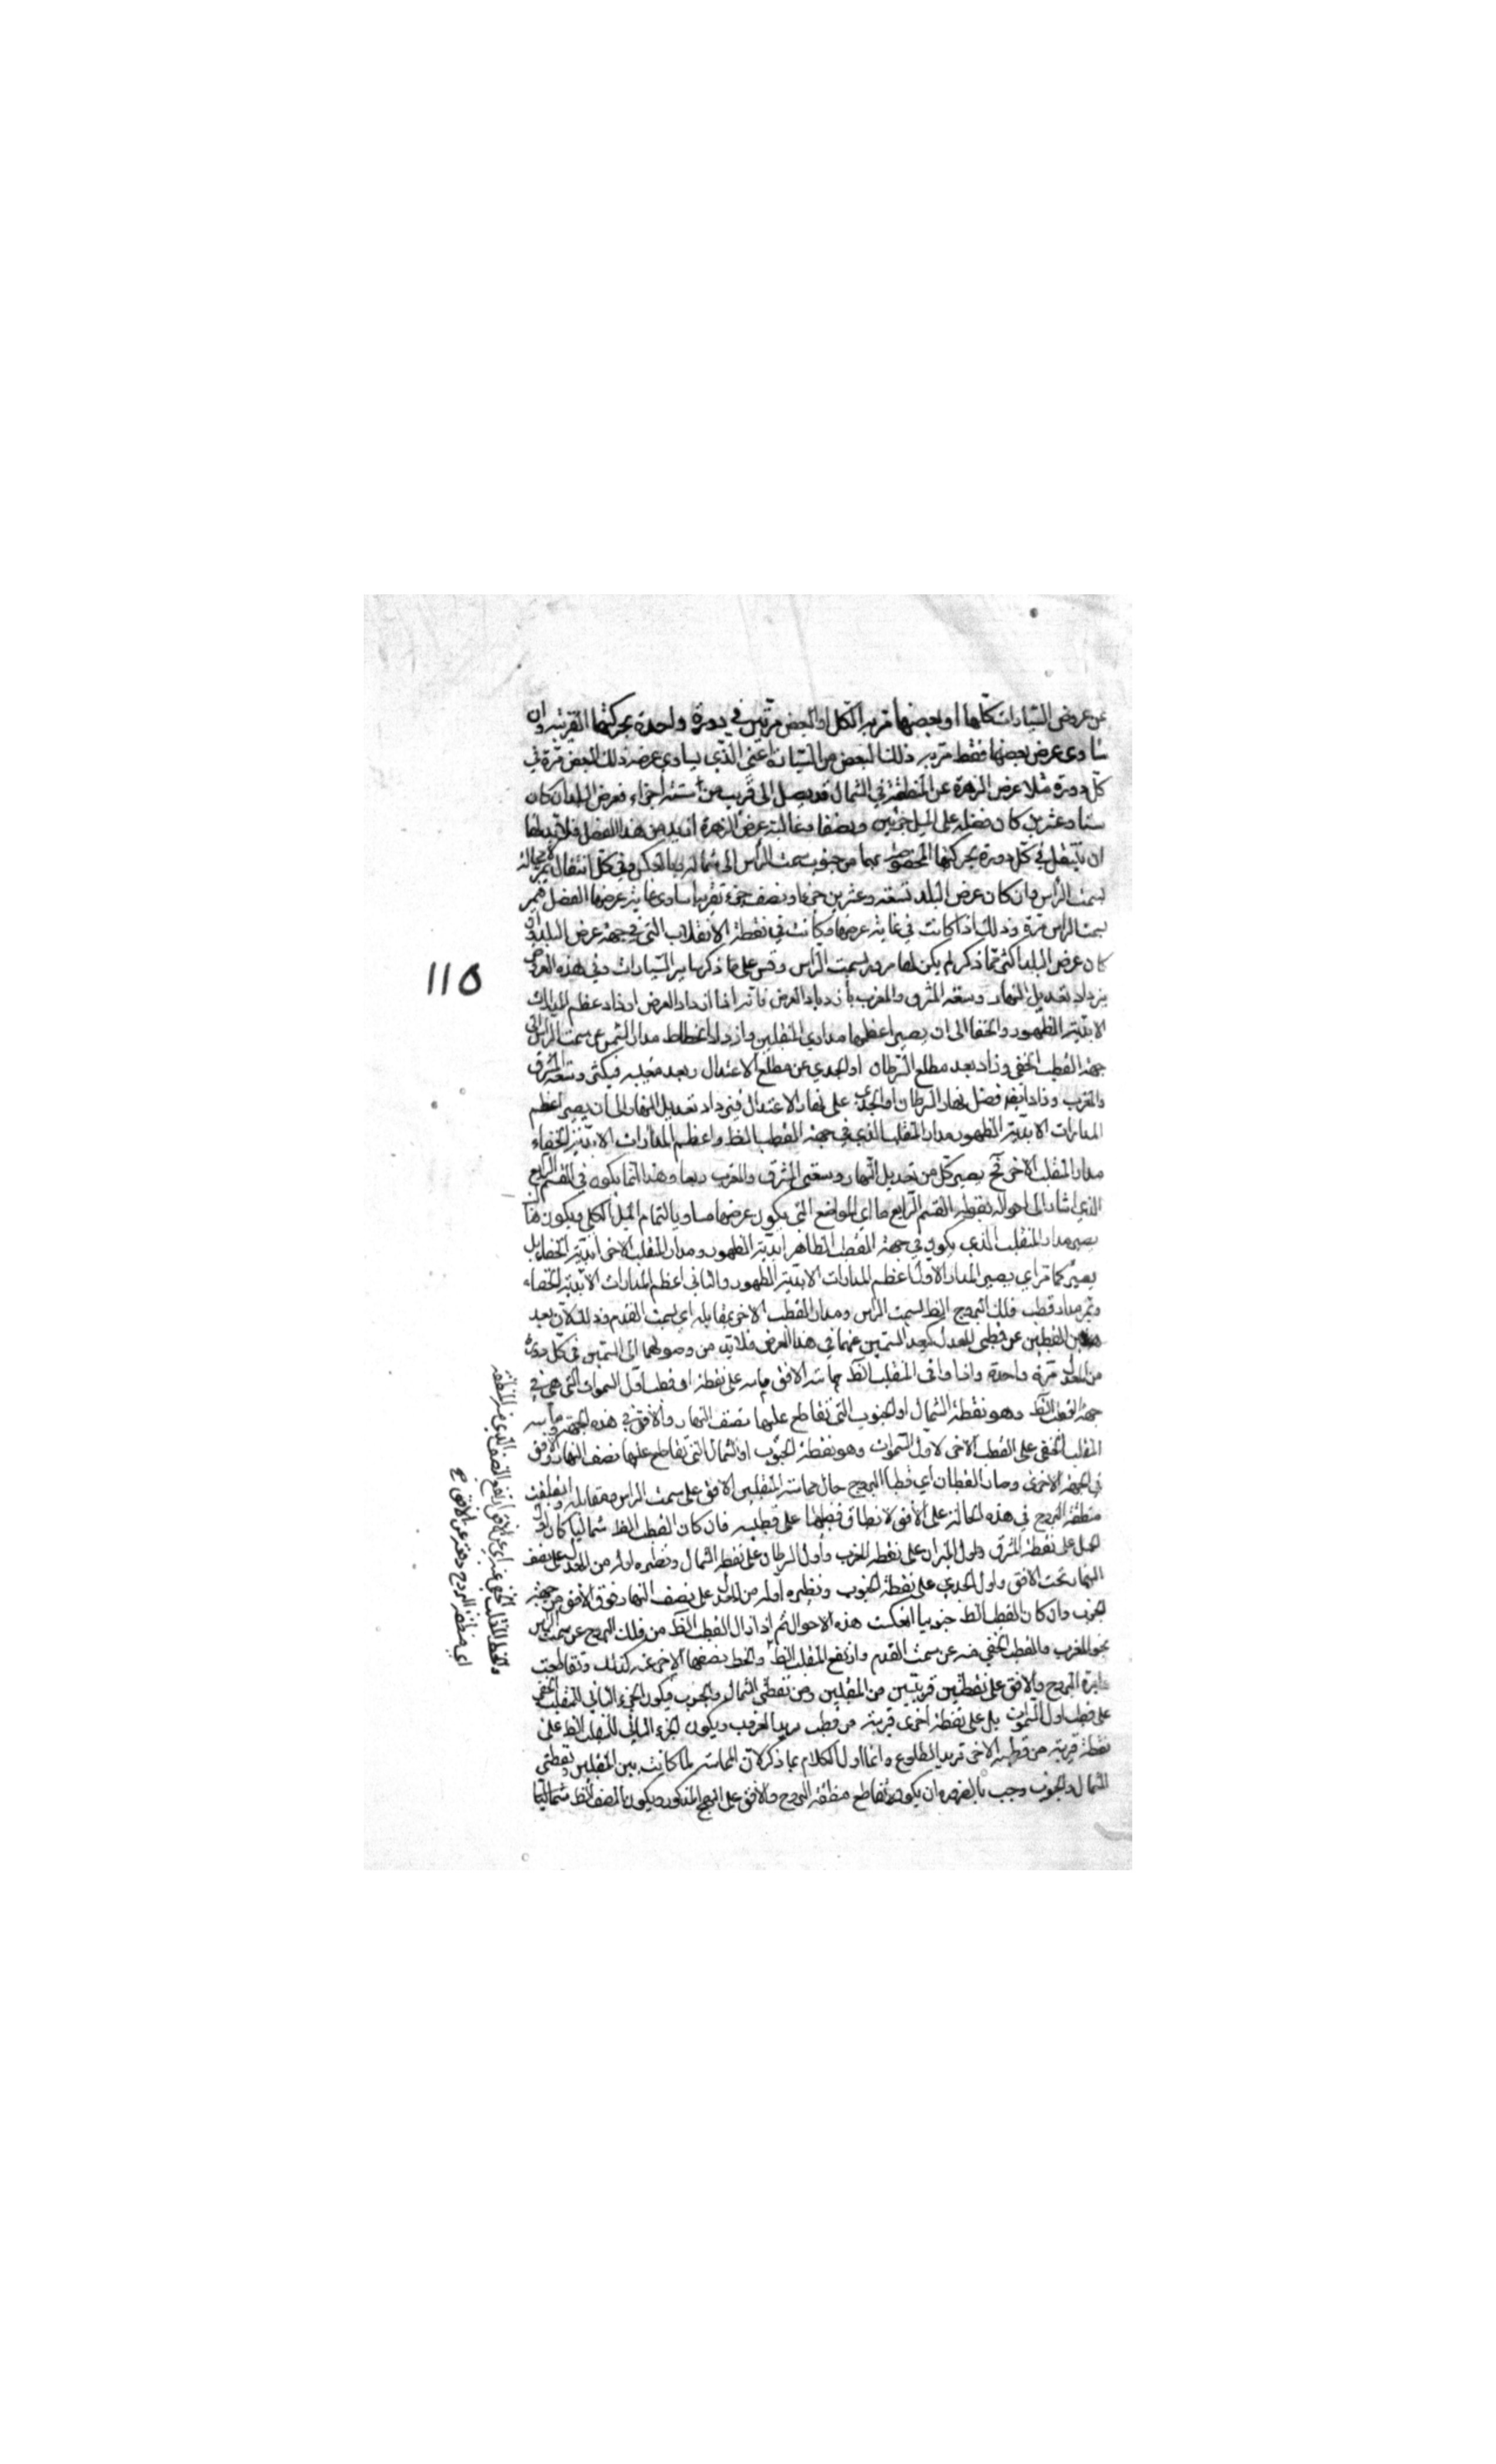 عن عروض السيارات كلها او بعضها تمر به الكل او البعض مرتين في دورة واحدة بحركتها القريبة وان
ساوى عرض بعضها فقط تمر به ذلك البعض من السيارة اعني الذي يساوي عرضه ذلك البعض مرة في
كل دورة مثلا عرض الزهرة عن المنطقة في الشمال قد يصل الى قريب من ستة اجزاء فعرض البلد ان كان
ستا وعشرين كان فضله على الميل جزئين ونصفا وغاية عرض الزهرة ازيد من هذا الفضل فلا بد لها
ان تنتقل في كل دورة بحركتها المخصوصة بها من جنوب سمت الرأس الى شماله وبالعكس وفي كل انتقال تمر لا محالة
بسمت الرأس وان كان عرض البلد تسعة وعشرين جزءا ونصف جزء تقريبا ساوى غاية عرضها الفضل فتمر
بسمت الراس مرة وذلك اذا كانت في غاية عرضها وكانت في نقطة الانقلاب التي في جهة عرض البلد وان
كان عرض البلد اكثر مما ذكر لم يكن لها مرور بسمت الراس وقس على ما ذكر سائر السيارات وفي هذه العروض
يزداد تعديل النهار وسعة المشرق والمغرب بازدياد العرض فانه اذا ازداد العرض ازداد عظم المدارات
الابدية الظهور والخفا الى ان يصير اعظمها مداري المنقلبين وازداد انحطاط مدار الشمس عن سمت الراس الى
جهة القطب الخفي وزاد بعد مطلع السرطان او الجدي عن مطلع الاعتدال وبعد مغيبه فيكثر وسعة المشرق
والمغرب وزاد ايضا فضل نهار السرطان او الجدي على نهار الاعتدال فيزداد تعديل النهار الى ان يصير اعظم
المدارات الابدية الظهور مدار المنقلب الذي في جهة القطب الظ واعظم المدارات الابدية الخفاء
مدار المنقلب الاخر فح يصير كل من تعديل النهار وسعتي المشرق والمغرب ربعا وهذا انما يكون في القسم الرابع
الذي اشار الى احواله بقوله القسم الرابع ما اي المواضع التي يكون عرضها مساويا لتمام الميل الكلي ويكون هنا
يصير مدار المنقلب الذي يكون في جهة القطب الظاهر ابدي الظهور ومدار المنقلب الاخر ابدي الخفاء بل
يصير كما مر اي يصير المدار الاول اعظم المدارات الابدية الظهور والثاني اعظم المدارات الابدية الخفاء
وتمر مدار قطب فلك البروج الظ بسمت الراس ومدار القطب الاخر بمقابله اي بسمت القدم وذلك لان بعد
هذين القطبين عن قطبي المعدل كبعد السمتين عنهما في هذا العرض فلا بد من وصولهما الى السمتين في كل دورة
من المعدل مرة واحدة واذا وافى المنقلب الظ مماسة الافق ماسه على نقطة او قطب اول السموات التي هي في
جهة القطب الظ وهو نقطة الشمال او الجنوب التي تقاطع عليها نصف النهار والافق في هذه الجهة وماسه
المنقلب الخفي على القطب الاخر لاول السموات وهو نقطة الجنوب او الشمال التي تقاطع عليها نصف النهار والافق
في الجهة الاخرى وصار القطبان اي قطبا البروج حال مماسة المنقلبين الافق على سمت الراس ومقابله وانطبقت
منطقة البروج في هذه الحالة على الافق لانطباق قطبها على قطبيه فان كان القطب الظ شماليا كان اول
الحمل على نقطة المشرق واول الميزان على نقطة المغرب واول السرطان على نقطة الشمال ونظيره اوله من المعدل على نصف
النهار تحت الافق واول الجدي على نقطة الجنوب ونظيره اوله من المعدل على نصف النهار فوق الافق من جهة
الجنوب وان كان القطب الظ جنوبيا انعكست هذه الاحوال ثم اذا زال القطب الظ من فلك البروج عن سمت الراس
نحو المغرب والقطب الخفي منه عن سمت القدم وارتفع المنقلب الظ وانحط نصفها الاخر عنه كذلك وتقاطعت
دايرة البروج والافق على نقطتين قريبتين من المنقلبين ومن نقطتي الشمال والجنوب فيكون الجزء التالي للمنقلب الخفي
على قطب اول السموات بل على نقطة اخرى قريبة من قطب يريد الغروب ويكون الجزء التالي للمنقلب الظ على
نقطة قريبة من قطبه الاخر تريد الطلوع وانما اول الكلام بما ذكر لان المماسة لما كانت بين المنقلبين ونقطتي
الشمال والجنوب وجب بالضرورة ان يكون تقاطع منطقة البروج والافق على النهج المذكور ويكون النصف الظ شماليا
١١٥
وانحط المنقلب الخفي عنه اي عن الافق ارتفع النصف الذي من المنطقة
اي منطقة البروج دفعة عن الافق صح